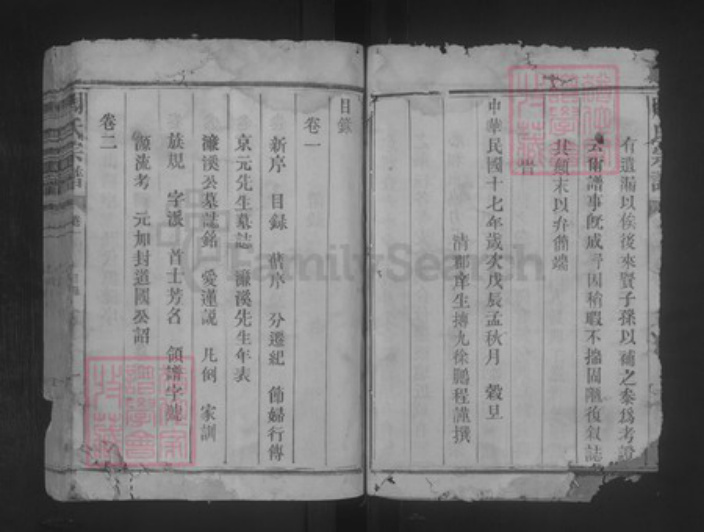 有遺漏以俟後來賢子孫以補之參爲考證
云爾譜事既成予因稍暇不揣固陋復叙誌
其顛末以弁簡端
中華民國十七年歲次戊辰孟秋月 穀旦
清郡庠生摶九徐鵬程謹撰
目錄
卷一
新序 目錄 舊序 分遷紀 節婦行傳
京元先生墓誌 濂溪先生年表
濂溪公墓誌銘 愛蓮說 凡例 家訓
族規 字派 首士芳名 領譜字號
源流考 元加封道國公詔
卷二
氏宗譜
卷一
FamilySearch